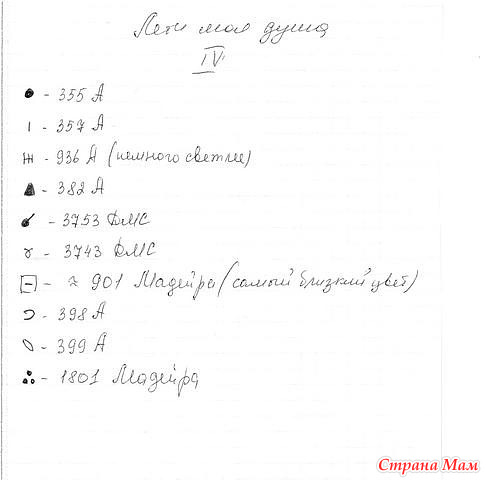 Лети моя душа
IV
● - 355 А
ı - 357 А
ж - 936 А (немного светлее)
▲ - 382 А
- 3753 ДМС
૪ - 3743 ДМС
⊟ - ≈ 901 Мадейра (самый близкий цвет)
⊃ - 398 А
- 399 А
∴ - 1801 Мадейра
Страна Мам